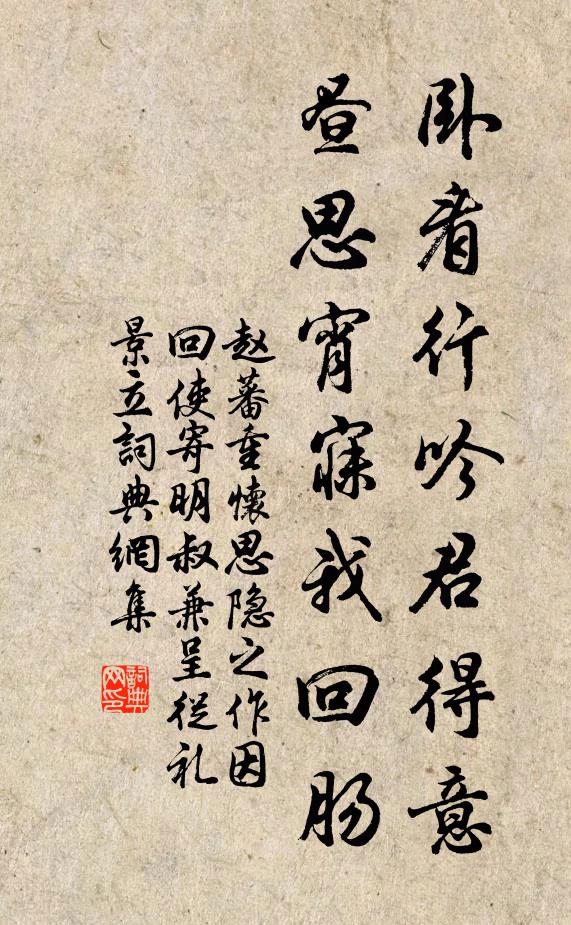 卧看行吟君得意
昼思宵寐我回肠
赵蕃重懷思隐之作因
回使寄明叔兼呈從礼
景立詞典網集
詞典
网印